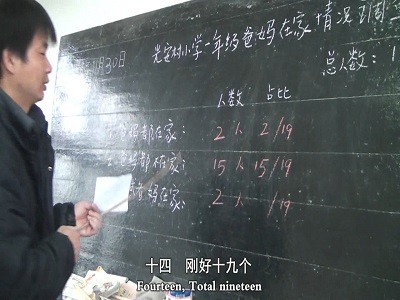 11月30日
小学一年级爸妈在家情况
总人数:1
人数 占比
爸妈都在家: 2人 2/19
爸妈都不在家: 15人 15/19
妈在家: 2人 /19
十四 刚好十九个
Fourteen, Total nineteen